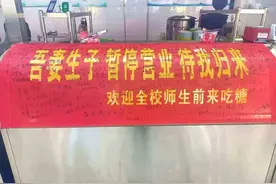 吾妻生子 暂停营业 待我归来
欢迎全校师生前来吃糖